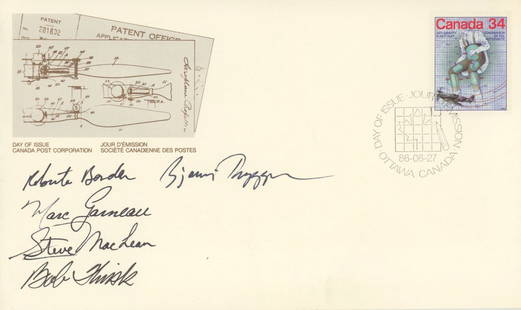 PATENT
281832
PATENT OFFICE
DAY OF ISSUE
CANADA POST CORPORATION
JOUR D'ÉMISSION
SOCIÉTÉ CANADIENNE DES POSTES
Canada 34
DAY OF ISSUE JOUR D'ÉMISSION
86-06-27
OTTAWA CANADA
Roberta Bondar
Bjarni Tryggvason
Marc Garneau
Steve MacLean
Bob Thirsk